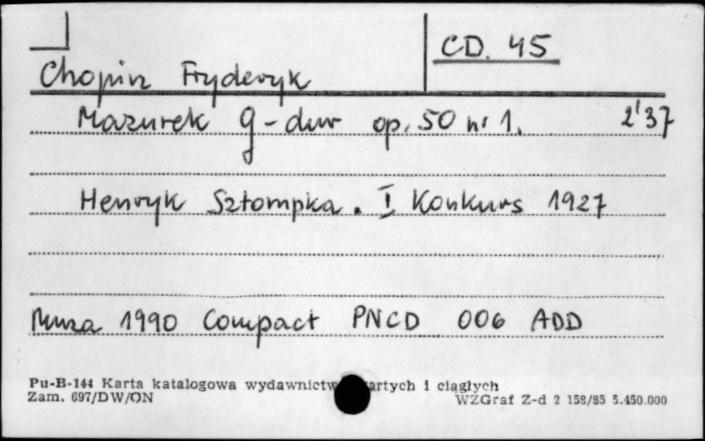 CD. 45
Chopin Fryderyk
Mazurek G-dur op. 50 nr 1. 2'37
Henryk Sztompka. I Konkurs 1927
Muza 1990 Compact PNCD 006 ADD
Pu-B-144 Karta katalogowa wydawnictw artych i ciągłych
Zam. 697/DW/ON WZGraf Z-d 2 158/85 5.450.000